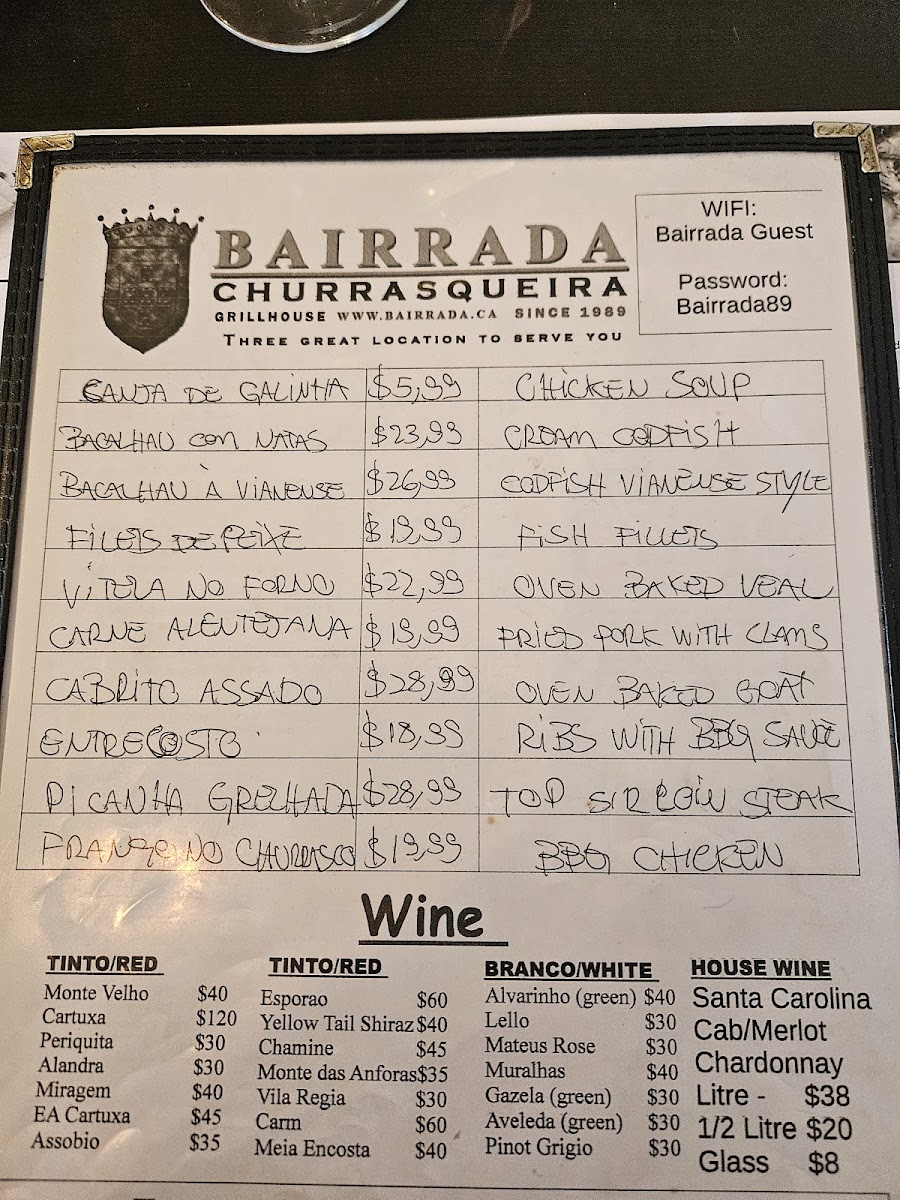 BAIRRADA
CHURRASQUEIRA
GRILLHOUSE WWW.BAIRRADA.CA SINCE 1989
THREE GREAT LOCATION TO SERVE YOU
WIFI:
Bairrada Guest
Password:
Bairrada89
CANJA DE GALINHA $5,99 CHICKEN SOUP
BACALHAU COM NATAS $23,99 CREAM CODFISH
BACALHAU À VIANENSE $26,99 CODFISH VIANENSE STYLE
FILETS DE PEIXE $19,99 FISH FILLETS
VITELA NO FORNO $22,99 OVEN BAKED VEAL
CARNE ALENTEJANA $19,99 FRIED PORK WITH CLAMS
CABRITO ASSADO $28,99 OVEN BAKED GOAT
ENTRECOSTO $18,99 RIBS WITH BBQ SAUCE
PICANHA GRELHADA $28,99 TOP SIRLOIN STEAK
FRANGO NO CHURRASCO $19,99 BBQ CHICKEN
Wine
TINTO/RED
Monte Velho $40
Cartuxa $120
Periquita $30
Alandra $30
Miragem $40
EA Cartuxa $45
Assobio $35
TINTO/RED
Esporao $60
Yellow Tail Shiraz $40
Chamine $45
Monte das Anforas $35
Vila Regia $30
Carm $60
Meia Encosta $40
BRANCO/WHITE
Alvarinho (green) $40
Lello $30
Mateus Rose $30
Muralhas $40
Gazela (green) $30
Aveleda (green) $30
Pinot Grigio $30
HOUSE WINE
Santa Carolina
Cab/Merlot
Chardonnay
Litre - $38
1/2 Litre $20
Glass $8